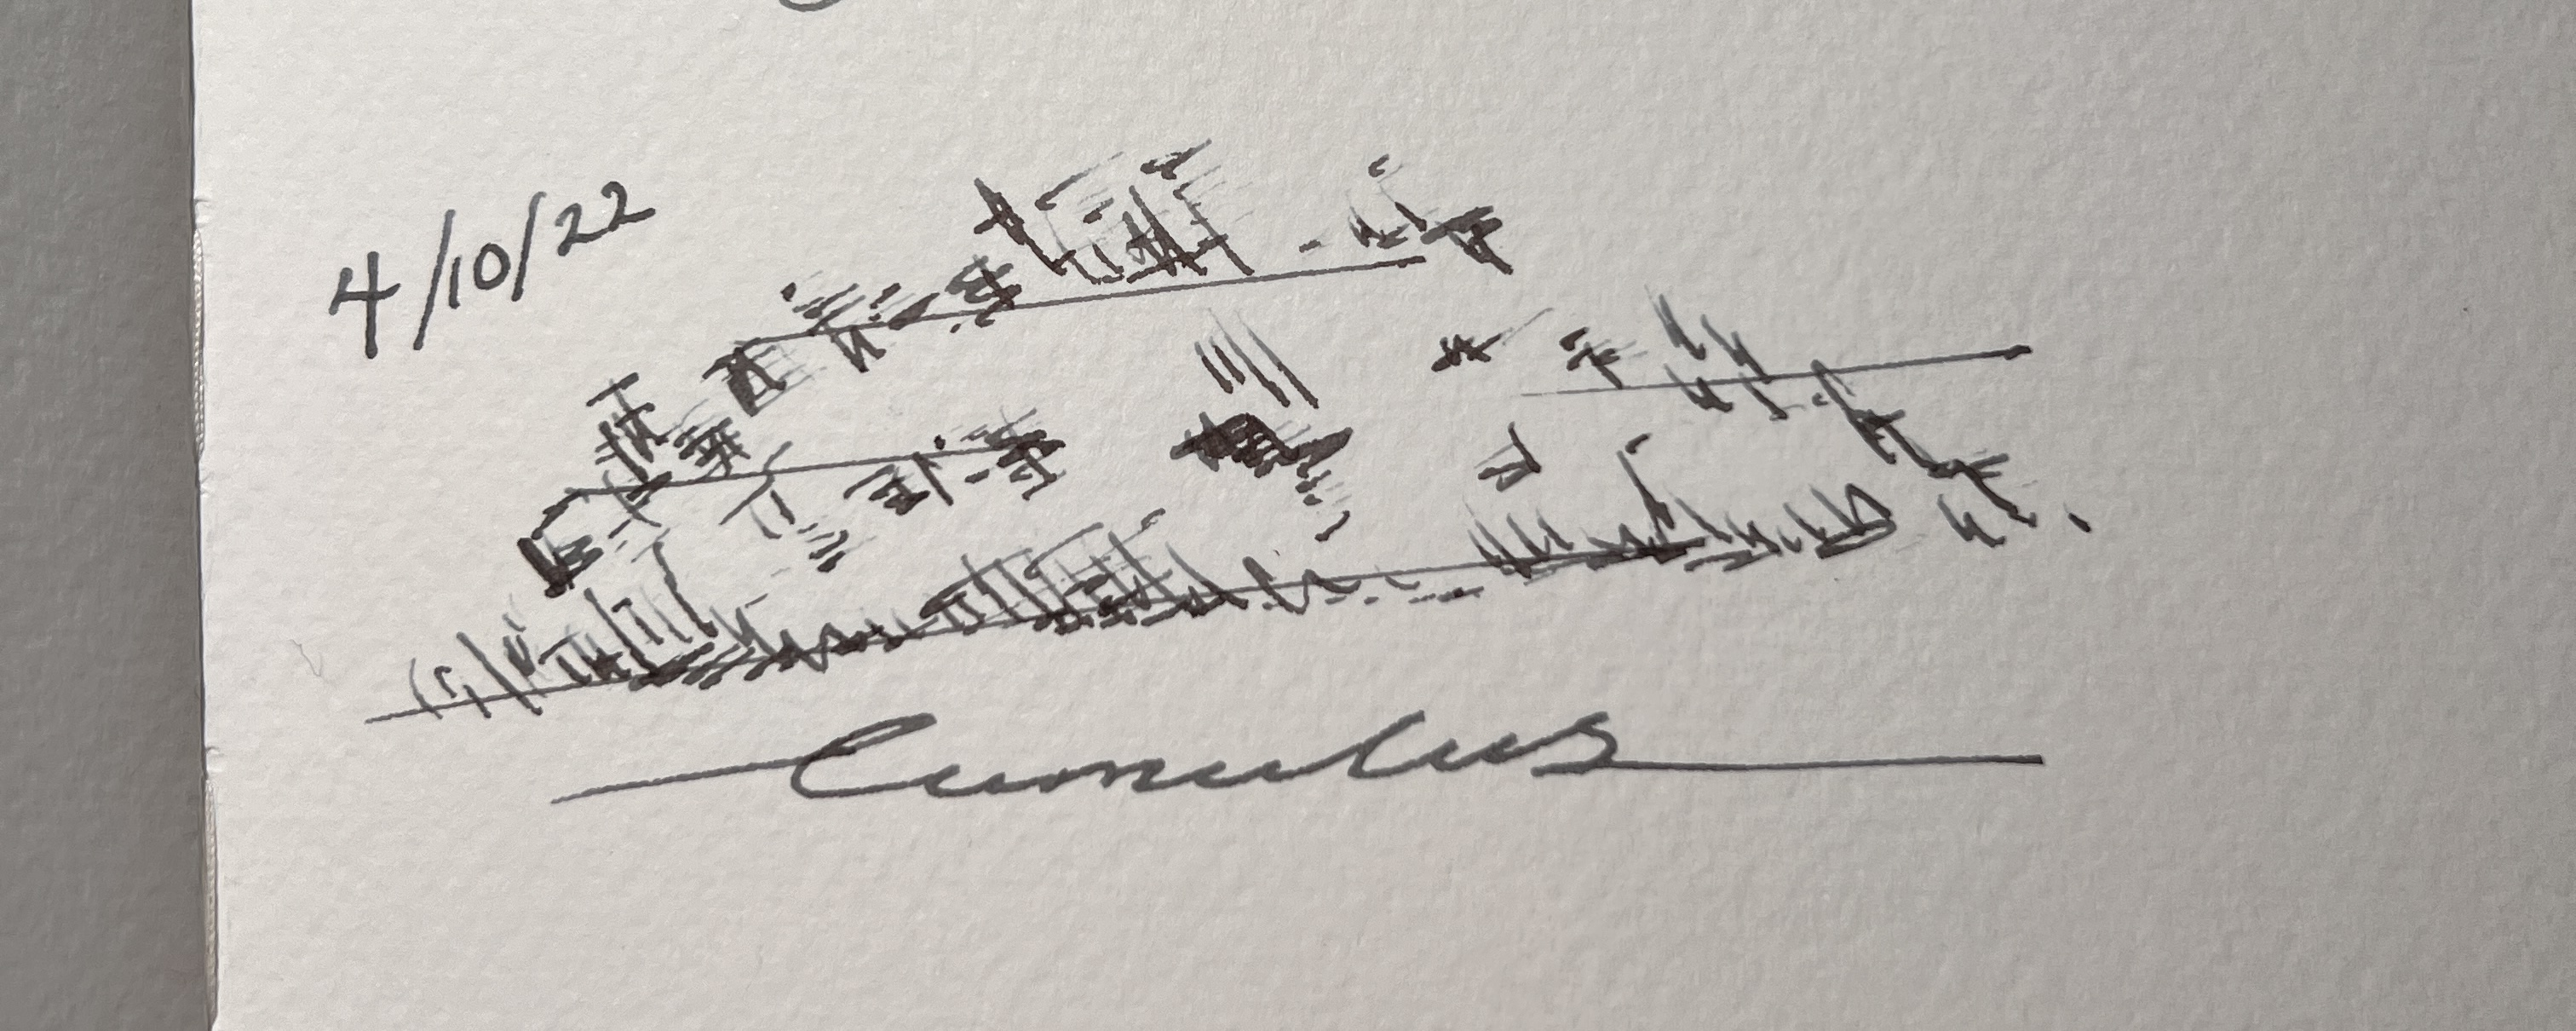 4/10/22
Cumulus